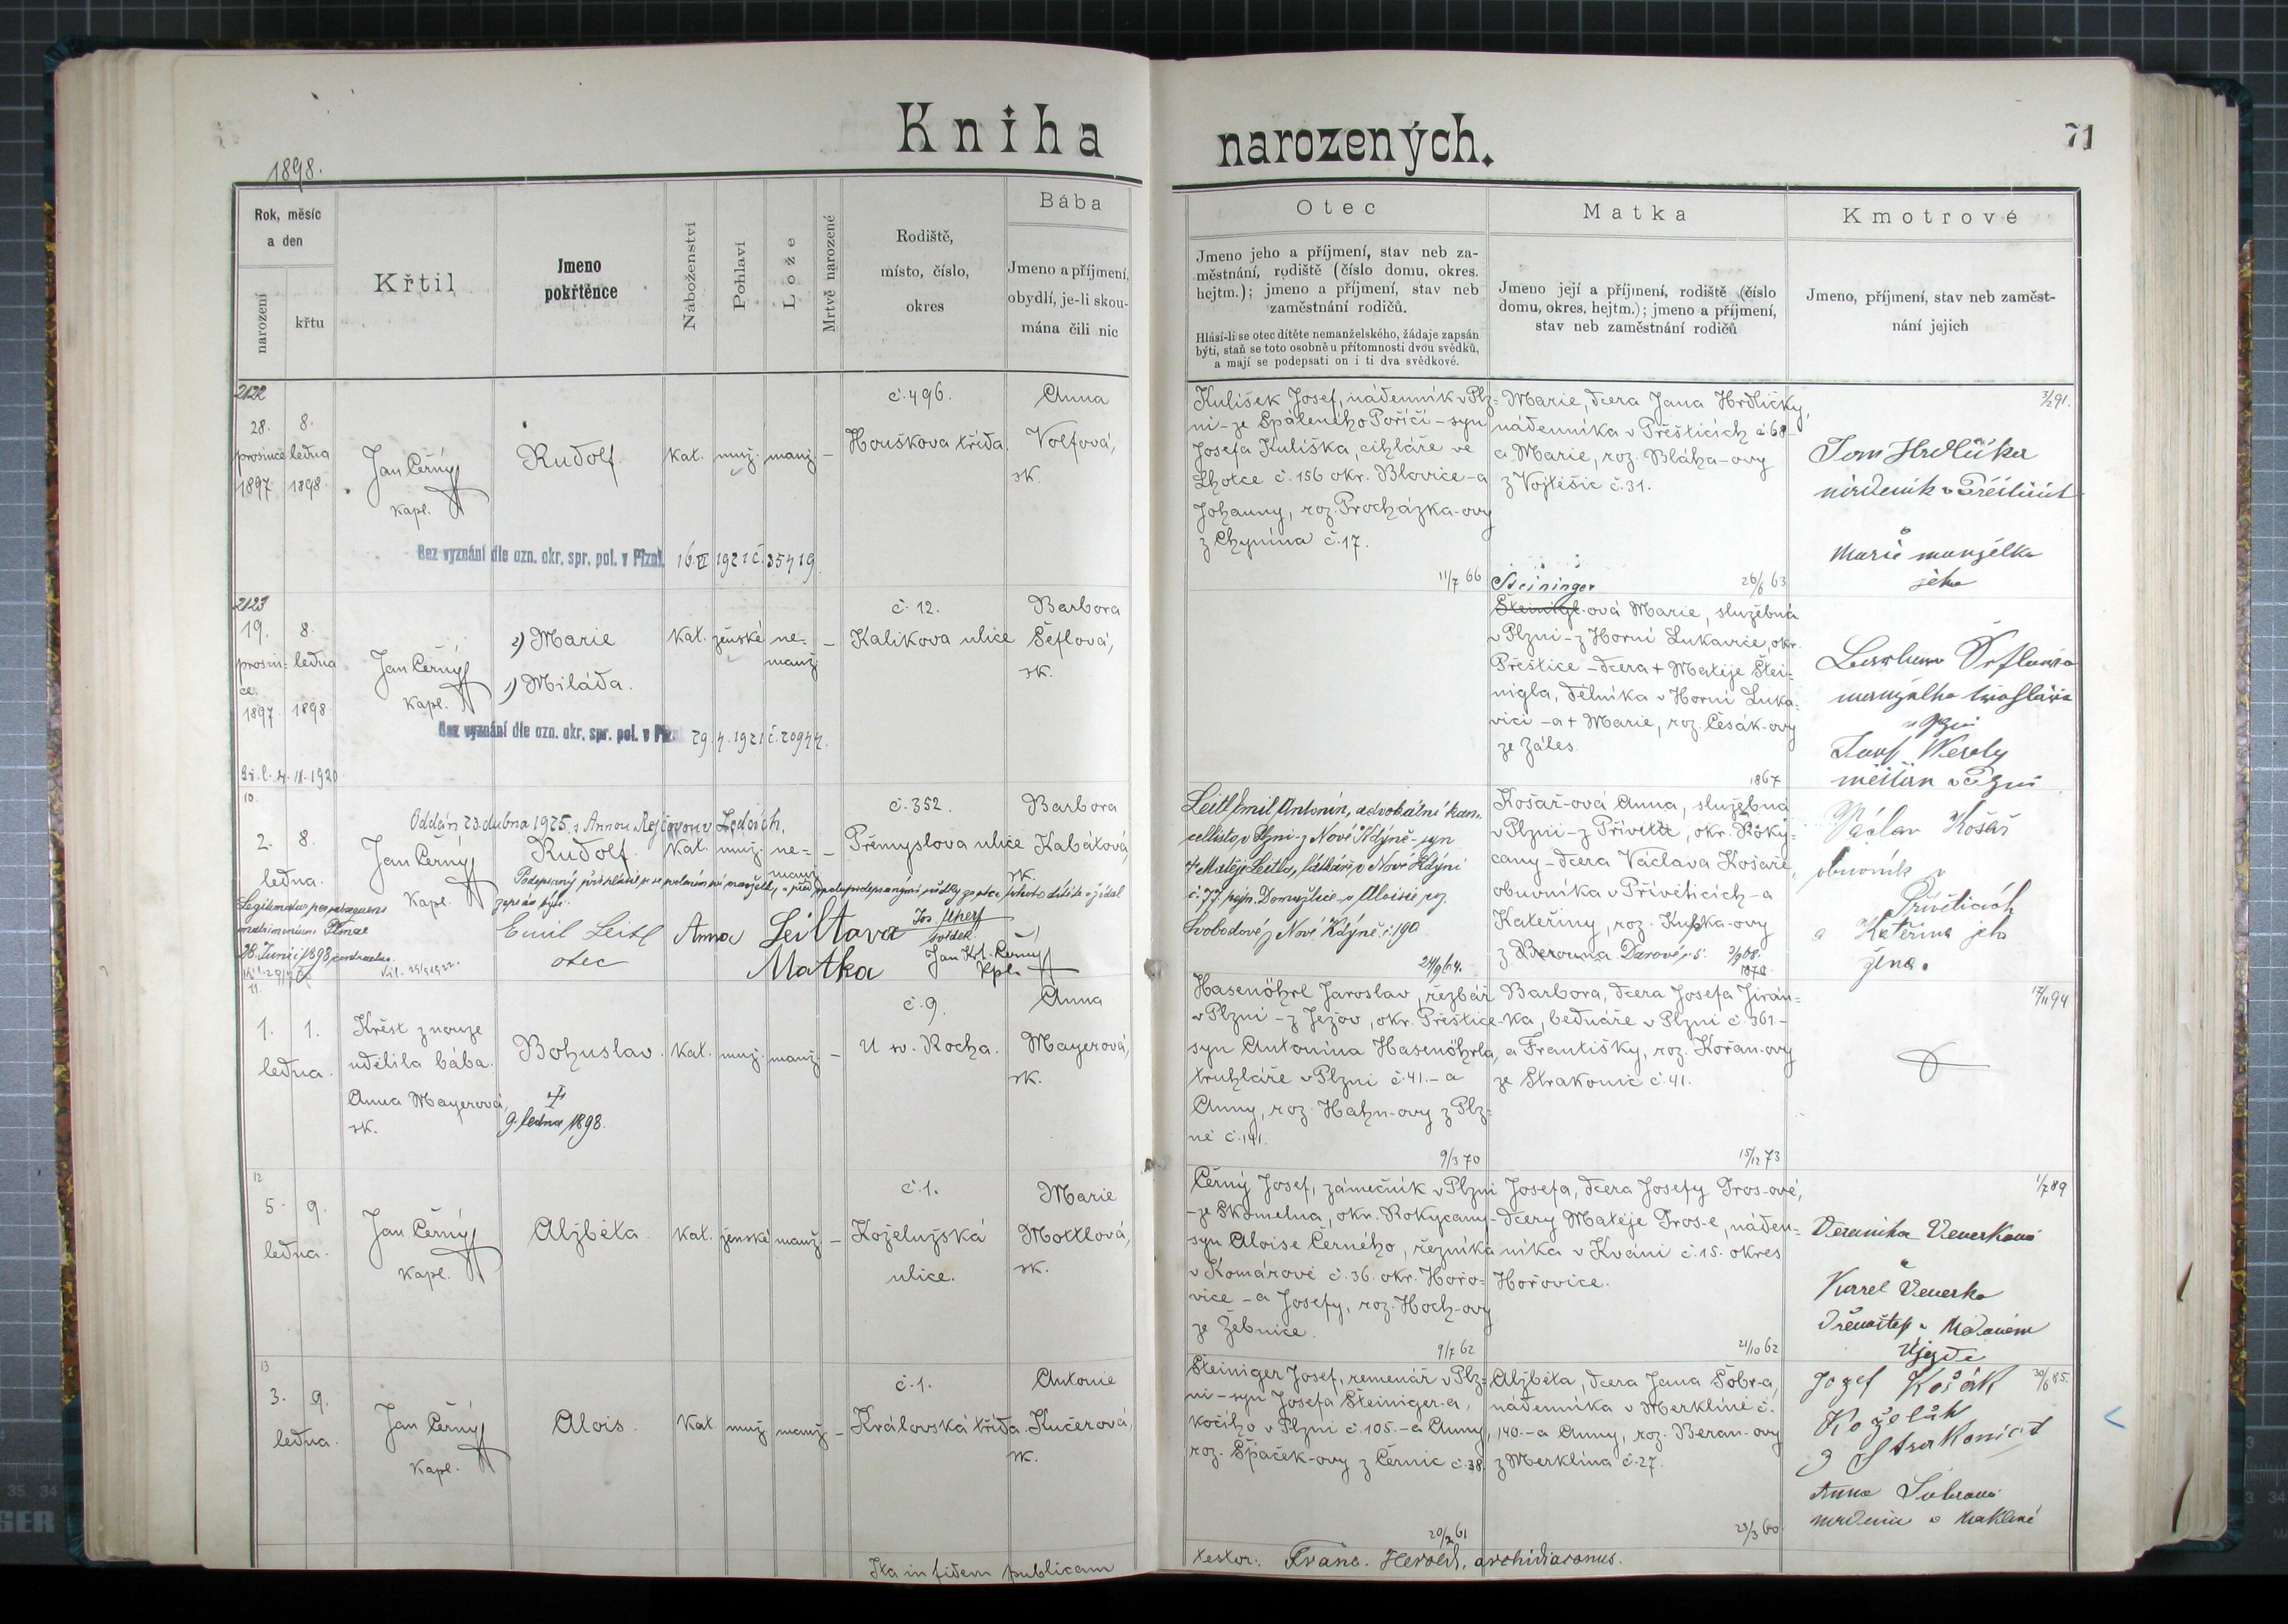 Kniha
narozených.
71
1898.
Rok, měsíc
a den
narození
křtu
Křtil
Jmeno
pokřtěnce
Náboženství
Pohlaví
Lože
Mrtvě narozené
Rodiště,
místo, číslo,
okres
Bába
Jmeno a příjmení,
obydlí, je-li skou-
mána čili nic
Otec
Jmeno jeho a příjmení, stav neb za-
městnání, rodiště (číslo domu, okres.
hejtm.); jmeno a příjmení, stav neb
zaměstnání rodičů.
Hlásí-li se otec dítěte nemanželského, žádaje zapsán
býti, staň se toto osobně u přítomnosti dvou svědků,
a mají se podepsati on i ti dva svědkové.
Matka
Jmeno její a příjmení, rodiště (číslo
domu, okres, hejtm.); jmeno a příjmení,
stav neb zaměstnání rodičů
Kmotrové
Jmeno, příjmení, stav neb zaměst-
nání jejich
2122
28.
prosince
1897
8.
ledna
1898
Jan Černý
kapl.
Rudolf.
kat.
muž.
manž.
–
č. 496.
Houškova třída
Anna
Volfová,
zk.
Bez vyznání dle ozn. okr. spr. pol. v Plzni 16. VI 1921 č. 35419
Kulišek Josef, nádenník v Plz-
ni - ze Spáleného Poříčí - syn
Josefa Kuliška, cihláře ve
Lhotce č. 156 okr. Blovice - a
Johanny, roz. Procházka-ovy
z Chynína č. 17.
11/7 66
Marie, dcera Jana Hrdličky,
nádenníka v Přešticích č. 68 -
a Marie, roz. Bláha-ovy
z Vojtěšic č. 31.
26/6 63
3/2 91.
Jan Hrdlička
a
Marie manželka
jeho
2123
19.
prosin-
ce
1897
8.
ledna
1898
Jan Černý
kapl.
2) Marie
1) Miláda.
kat.
ženské
ne-
manž.
–
č. 12.
Kalikova ulice
Barbora
Šeflová,
zk.
Bez vyznání dle ozn. okr. spr. pol. v Plz. 29. 4. 1921 č. 20944.
Steininger
Šteinigl-ová Marie, služebná
v Plzni - z Horní Lukavice, okr.
Přeštice - dcera + Matěje Štei-
nigla, dělníka v Horní Luka-
vici - a + Marie, roz. Česák-ovy
ze Záles.
1867
Josef Wesely
měšťan v Plzni
10
2.
8.
ledna.
Oddán 23. dubna 1925 s Annou
Jan Černý
kapl.
Rudolf.
kat.
muž.
ne-
manž.
–
č. 352.
Přemyslova ulice
Barbora
Kabátová,
zk.
Legitimatus per subsequens
matrimonium Plznae
28. Junii 1898 contractum.
zapsán býti.
Emil Leitl
otec
Anna Leitlova
Matka
svědek
Jan Křt. Černý
kpl.
Leitl Emil Antonín, advokátní kan-
cellista v Plzni z Nové Kdýně - syn
+ Matěje Leitla, látkáře v Nové Kdýni
č. 77 hejt. Domažlice a Aloisie roz.
Svobodové z Nové Kdýně č. 190
24/9 64.
Košař-ová Anna, služebná
v Plzni - z Přívětic, okr. Roky-
cany - dcera Václava Košaře,
obuvníka v Příveticích - a
Kateřiny, roz. Kubka-ovy
Václav Košař
obuvník v
Příveticích
a Kateřina jeho
žena.
11.
1.
1.
ledna.
Křest z nouze
udělila bába.
Anna Mayerová,
zk.
Bohuslav.
9. ledna 1898.
kat.
muž.
manž.
–
č. 9.
U sv. Rocha.
Anna
Mayerová,
zk.
Hasenöhrl Jaroslav, řezbář
v Plzni - z Ježov, okr. Přeštice -
syn Antonína Hasenöhrla,
truhláře v Plzni č. 41. - a
Anny, roz. Hahn-ovy z Plz-
ně č. 141.
9/3 70
Barbora, dcera Josefa Jirán-
ka, bednáře v Plzni č. 361 -
a Františky, roz. Kořan-ovy
ze Strakonic č. 41.
15/12 73
17/11 94
12
5.
9.
ledna.
Jan Černý
kapl.
Alžběta.
kat.
ženské
manž.
–
č. 1.
Koželužská
ulice.
Marie
Mottlová,
zk.
Černý Josef, zámečník v Plzni
- ze Skomelna, okr. Rokycany -
syn Aloise Černého, řezníka
v Komárově č. 36. okr. Hořo-
vice - a Josefy, roz. Hoch-ovy
ze Žebnice.
9/7 62
Josefa, dcera Josefy Gros-ové,
dcery Matěje Gros-e, náden-
níka v Kváni č. 15. okres
Hořovice.
21/10 62
1/7 89
Veronika Venerkova
a
Karel Venerka
Újezdě
13
3.
9.
ledna.
Jan Černý
kapl.
Alois.
kat.
muž.
manž.
–
č. 1.
Královská třída
Antonie
Kučerová,
zk.
Šteiniger Josef, remenář v Plz-
ni - syn Josefa Šteiniger-a,
kočího v Plzni č. 105. - a Anny,
roz. Špaček-ovy z Černic č. 38.
20/2 61
Alžběta, dcera Jana Šobr-a,
nádenníka v Merklíně č.
140. - a Anny, roz. Beran-ovy
z Merklína č. 27.
23/3 60
30/6 85.
Jozef Košák
Koželuh
z Strakonict
Anna
Ita in fidem publicam
testor: Franc. Herold, archidiaconus.